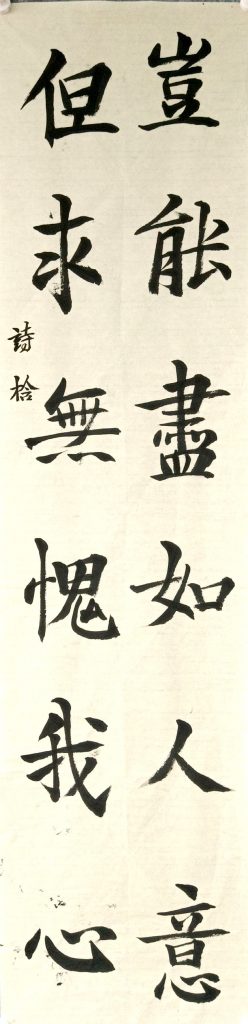 豈能盡如人意
但求無愧我心
詩拾